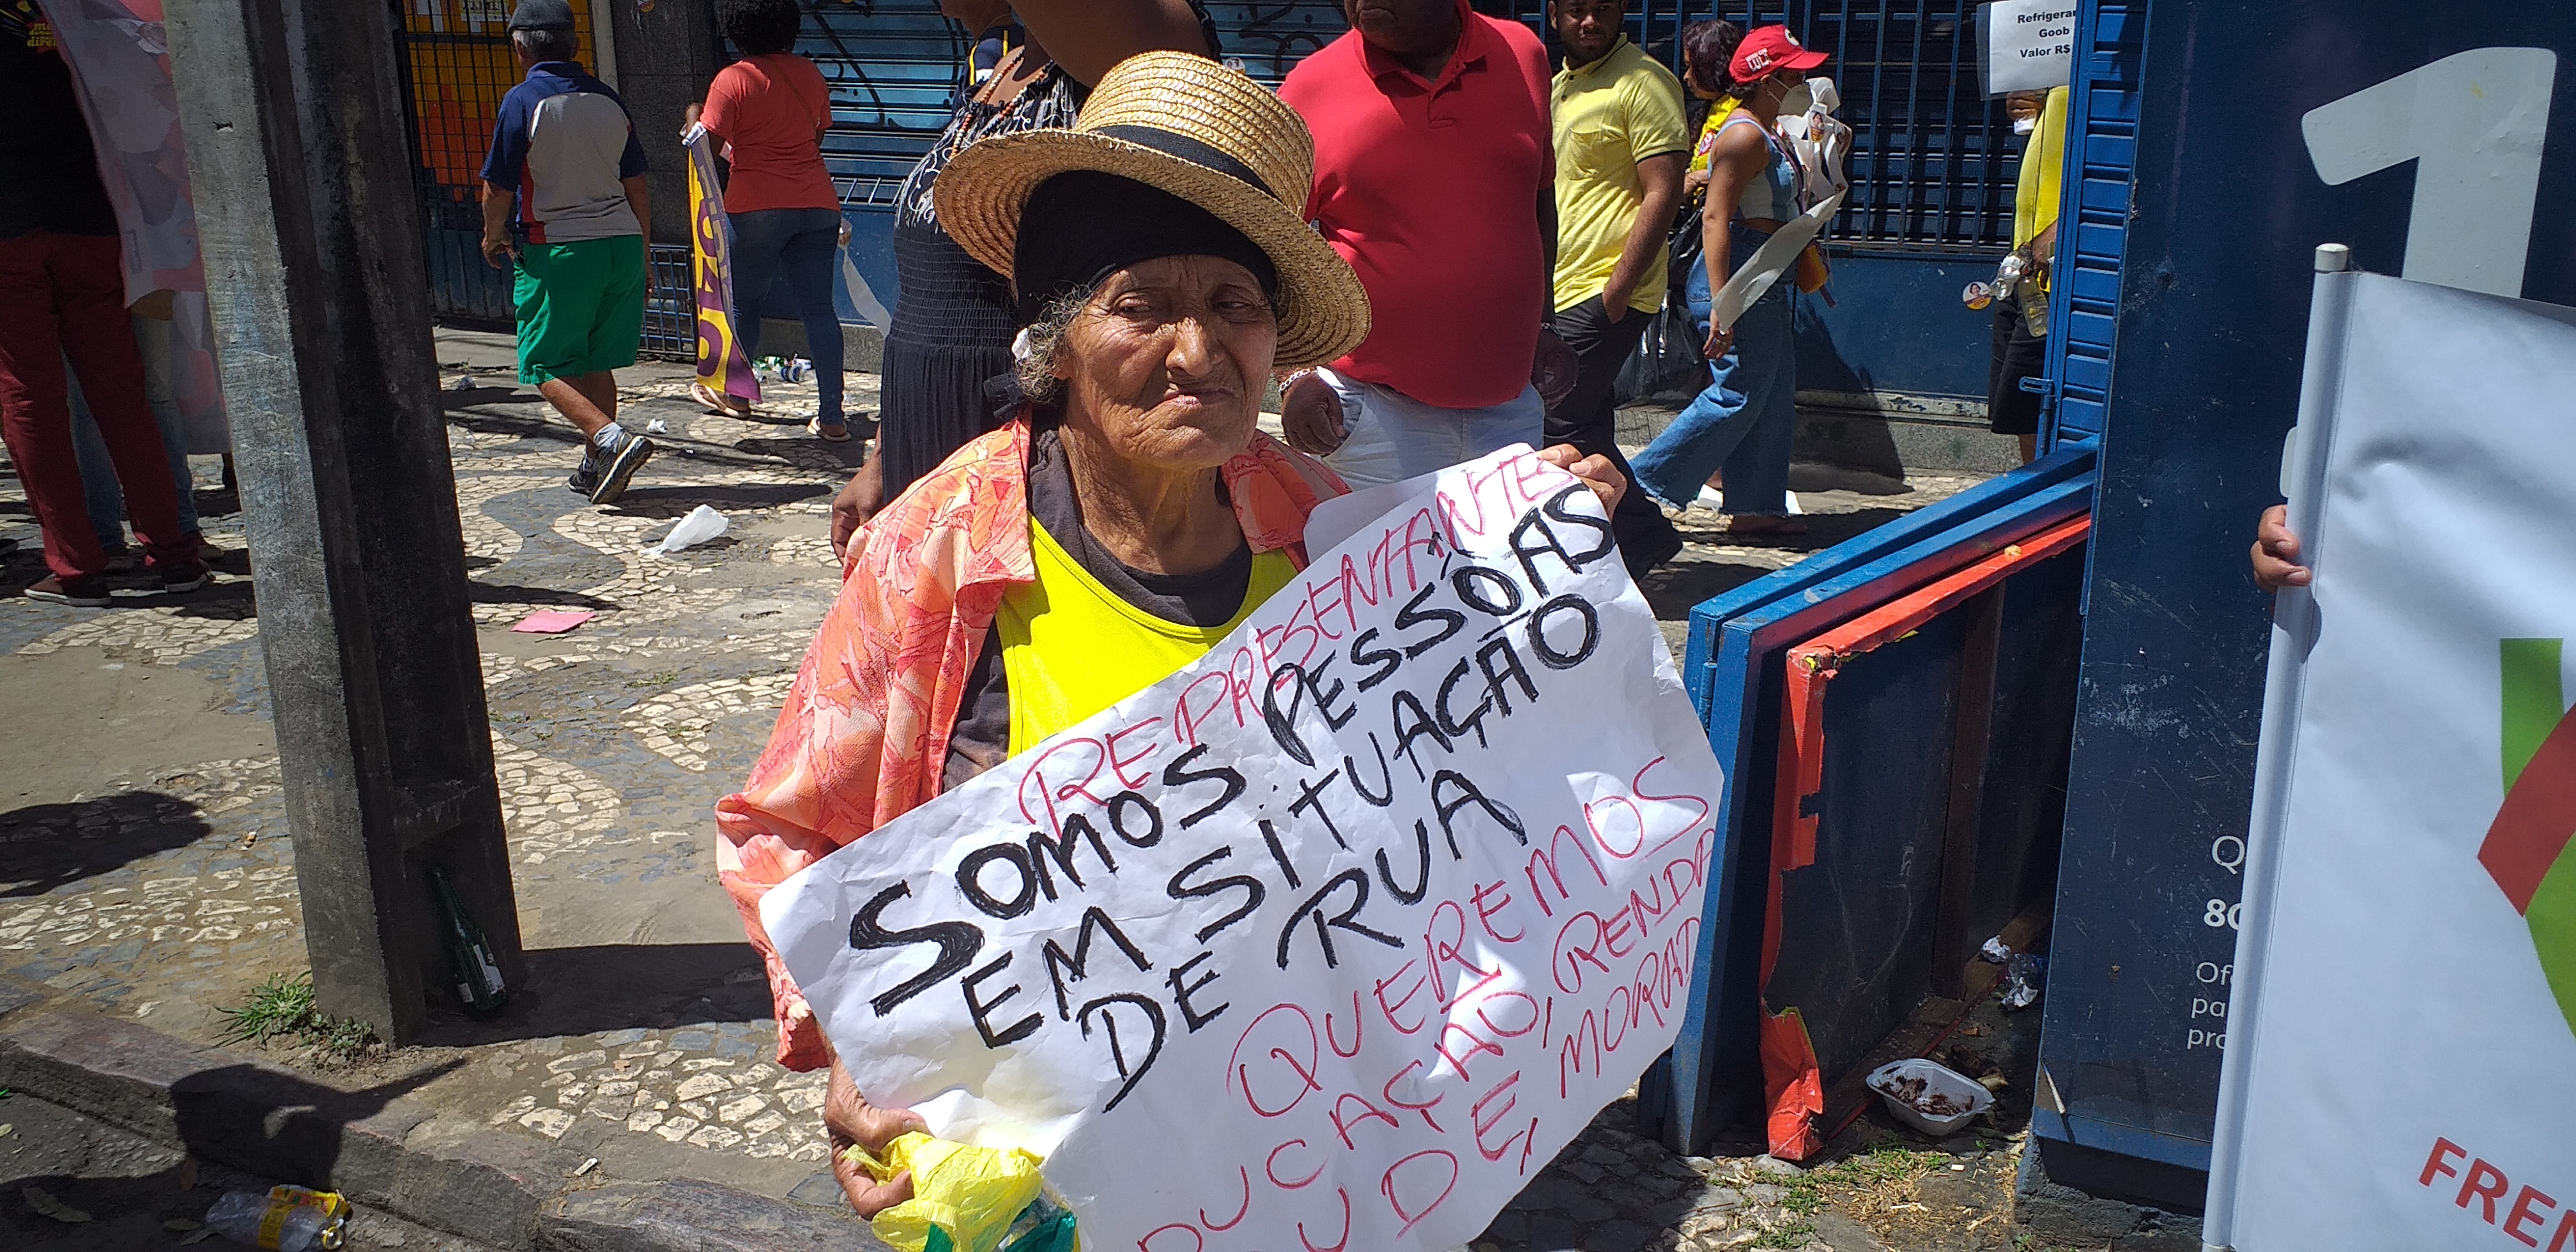 REPRESENTANTES
SOMOS PESSÔAS
EM SITUAÇÃO
DE RUA
QUEREMOS
DUCAÇÃO, RENDA
UDE, MORAD
Refrigeran
Goob
Valor R$
1
Q
80
Of
pa
pro
FREN